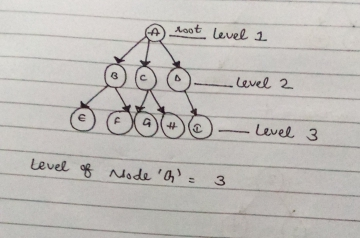 A root Level 1
B C D Level 2
E F G H I Level 3
Level of Node 'G' = 3